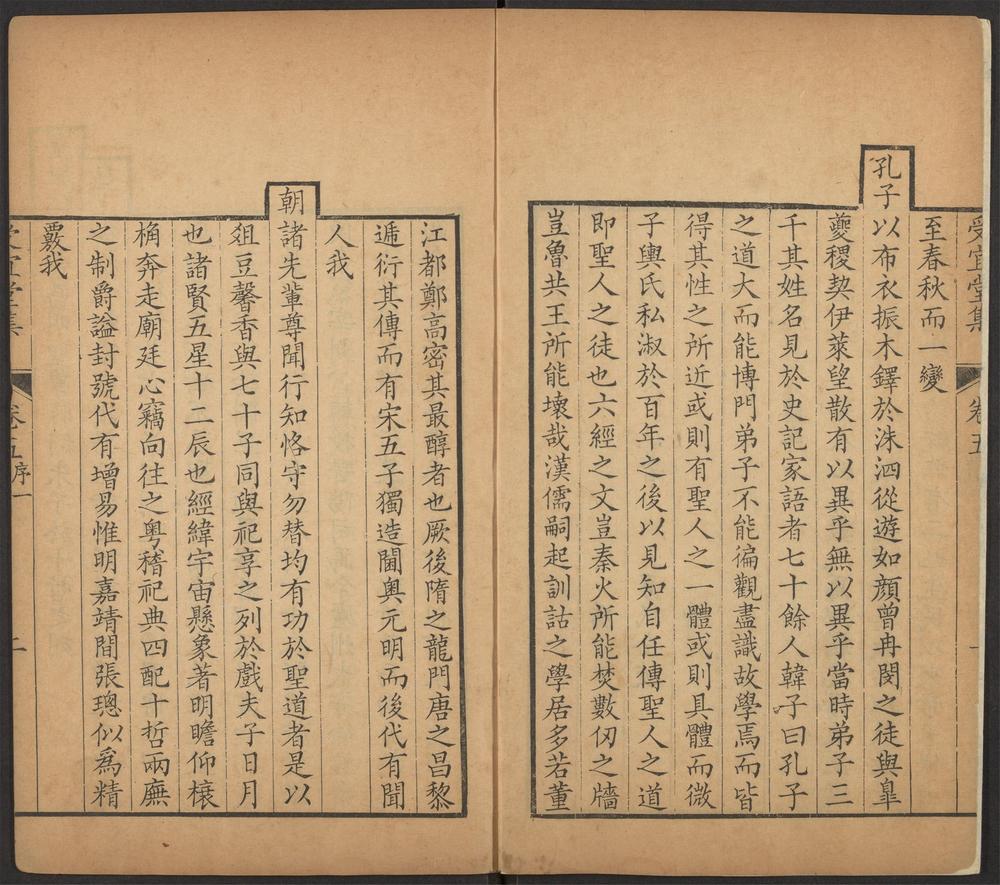 受宜堂集 卷五 一
至春秋而一變
孔子以布衣振木鐸於洙泗從遊如顏曾冉閔之徒與皐
夔稷契伊萊望散有以異乎無以異乎當時弟子三
千其姓名見於史記家語者七十餘人韓子曰孔子
之道大而能博門弟子不能徧觀盡識故學焉而皆
得其性之所近或則有聖人之一體或則具體而微
子輿氏私淑於百年之後以見知自任傳聖人之道
即聖人之徒也六經之文豈秦火所能焚數仞之牆
豈魯共王所能壞哉漢儒嗣起訓詁之學居多若董
江都鄭高密其最醇者也厥後隋之龍門唐之昌黎
遞衍其傳而有宋五子獨造閫奧元明而後代有聞
人我
朝諸先輩尊聞行知恪守勿替均有功於聖道者是以
俎豆馨香與七十子同與祀享之列於戲夫子日月
也諸賢五星十二辰也經緯宇宙懸象著明瞻仰榱
桷奔走廟廷心竊向往之粤稽祀典四配十哲兩廡
之制爵謚封號代有增易惟明嘉靖間張璁似爲精
覈我
受宜堂集 卷五 序一 二